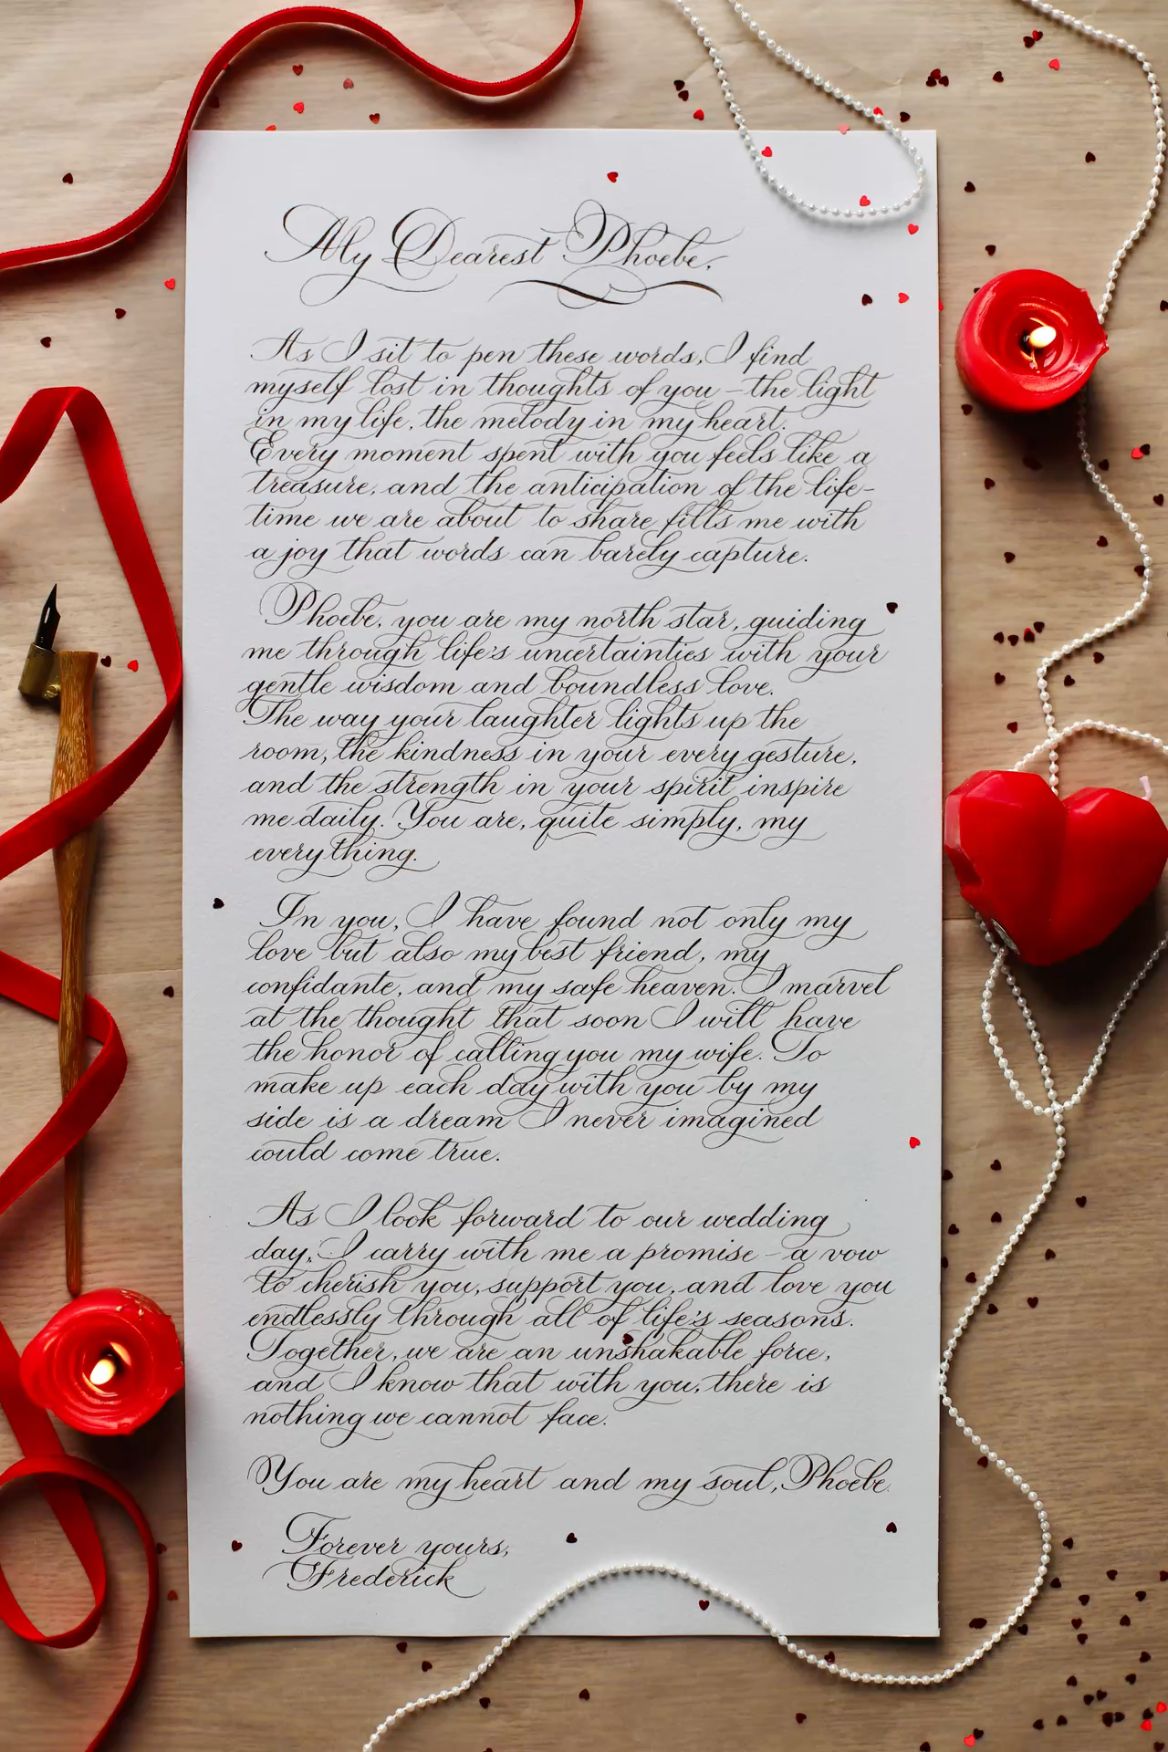 My Dearest Phoebe,
As I sit to pen these words, I find
myself lost in thoughts of you – the light
in my life, the melody in my heart.
Every moment spent with you feels like a
treasure, and the anticipation of the life-
time we are about to share fills me with
a joy that words can barely capture.
Phoebe, you are my north star, guiding
me through life's uncertainties with your
gentle wisdom and boundless love.
The way your laughter lights up the
room, the kindness in your every gesture,
and the strength in your spirit inspire
me daily. You are, quite simply, my
everything.
In you, I have found not only my
love but also my best friend, my
confidante, and my safe heaven. I marvel
at the thought that soon I will have
the honor of calling you my wife. To
make up each day with you by my
side is a dream I never imagined
could come true.
As I look forward to our wedding
day, I carry with me a promise – a vow
to cherish you, support you, and love you
endlessly through all of life's seasons.
Together, we are an unshakable force,
and I know that with you, there is
nothing we cannot face.
You are my heart and my soul, Phoebe.
Forever yours,
Frederick